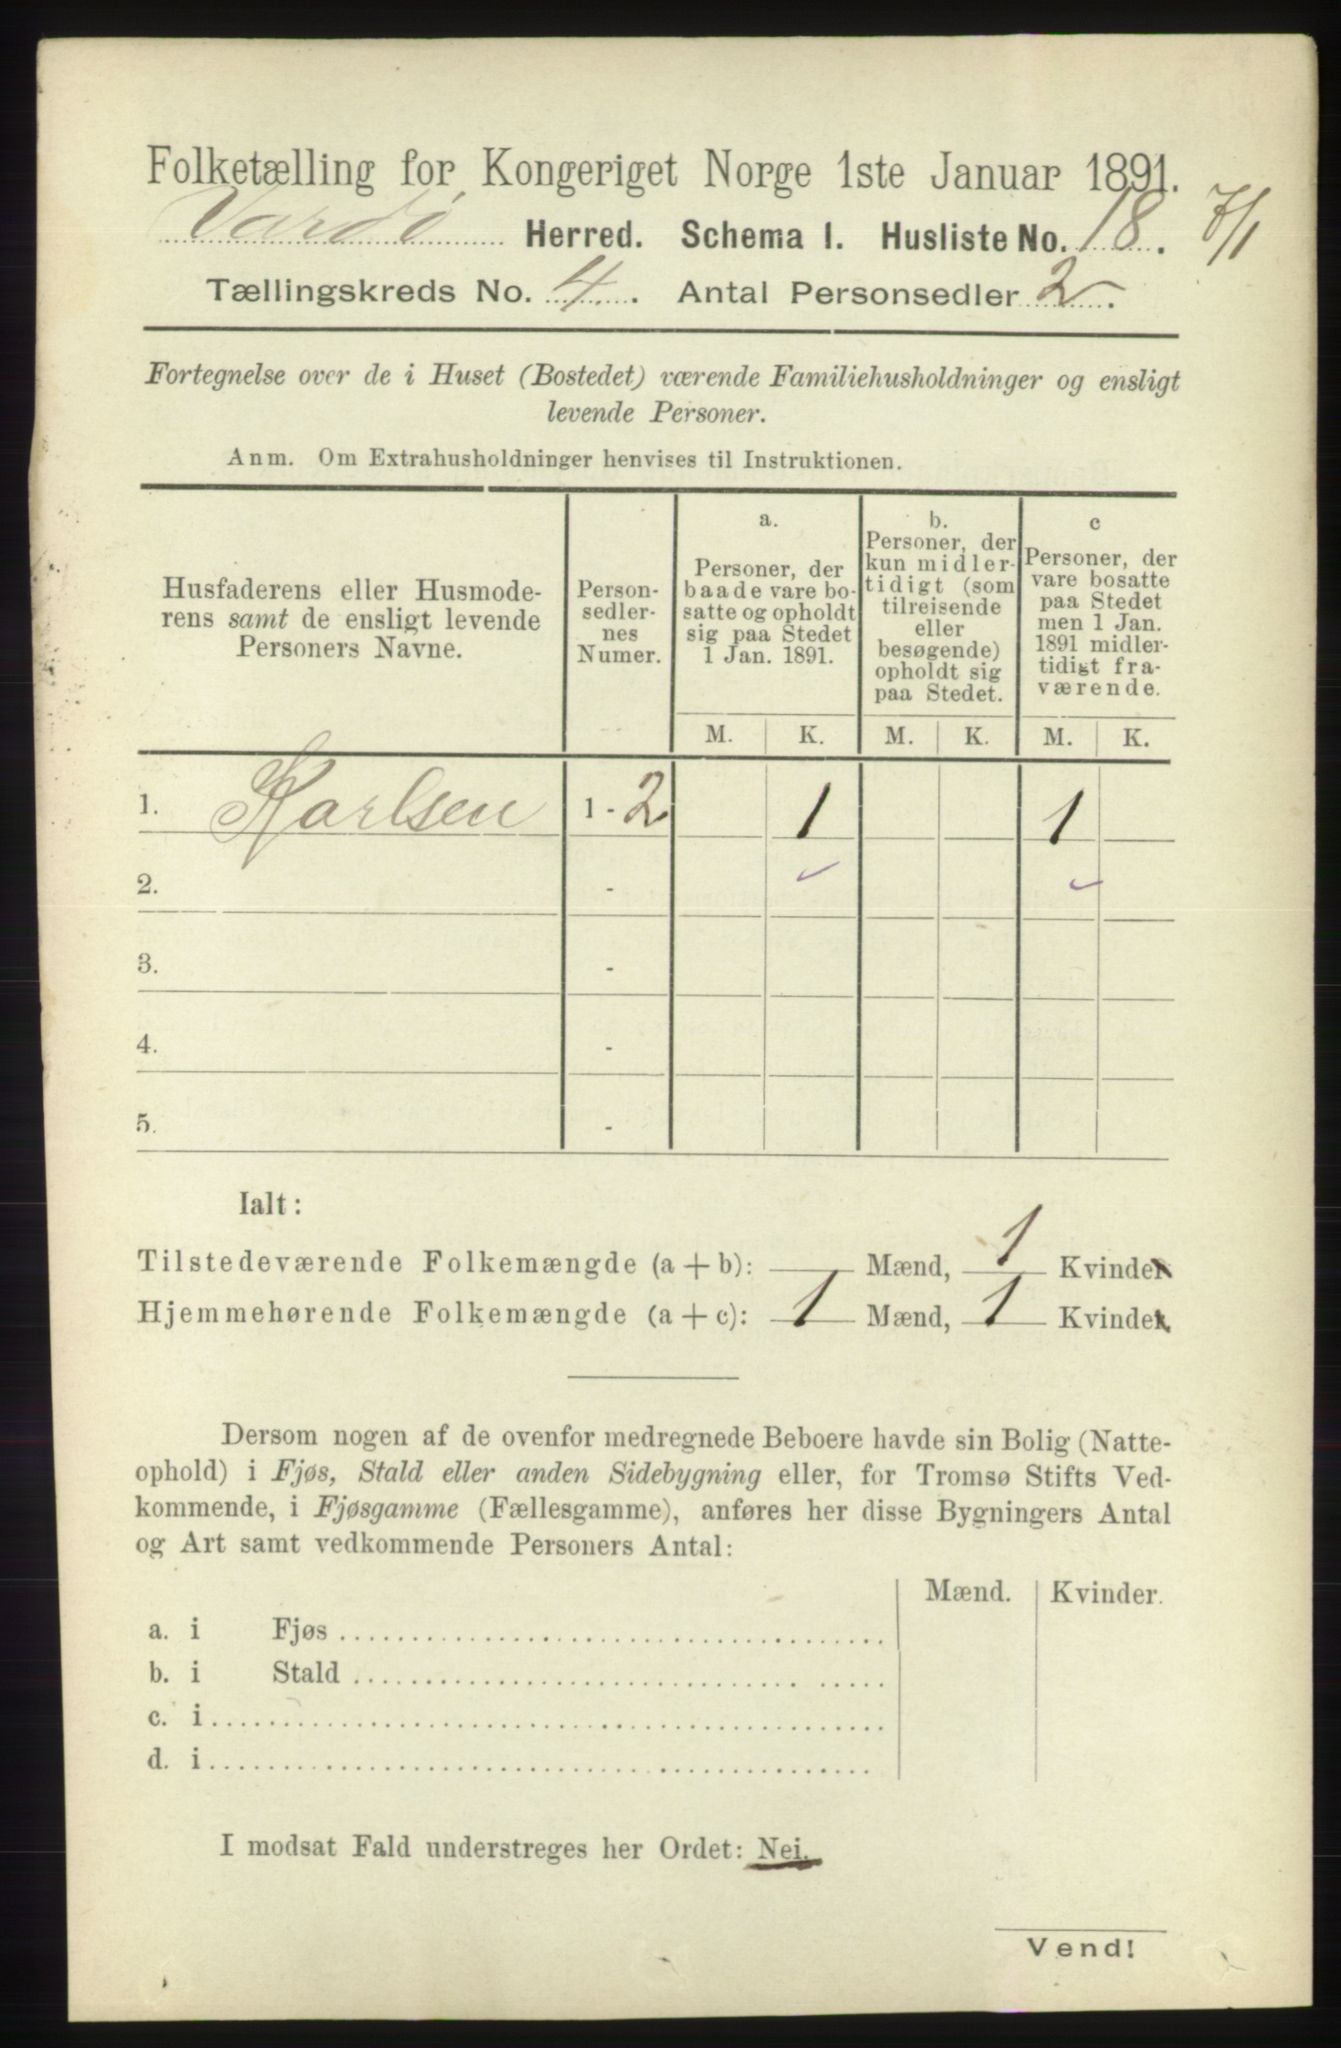 Folketælling for Kongeriget Norge 1ste Januar 1891.
Vardö Herred. Schema I. Husliste No. 18. 7/1
Tællingskreds No. 4. Antal Personsedler 2.
Fortegnelse over de i Huset (Bostedet) værende Familiehusholdninger og ensligt
levende Personer.
Anm. Om Extrahusholdninger henvises til Instruktionen.
Husfaderens eller Husmode-
rens samt de ensligt levende
Personers Navne.
Person-
sedler-
nes
Numer.
a.
Personer, der
baade vare bo-
satte og opholdt
sig paa Stedet
1 Jan. 1891.
b.
Personer, der
kun midler-
tidigt (som
tilreisende
eller
besøgende)
opholdt sig
paa Stedet.
c
Personer, der
vare bosatte
paa Stedet
men 1 Jan.
1891 midler-
tidigt fra-
værende.
M. K. M. K. M. K.
1. Karlsen 1 - 2 1 1
2. -
3. -
4. -
5. -
Ialt:
Tilstedeværende Folkemængde (a + b): Mænd, 1 Kvinder
Hjemmehørende Folkemængde (a + c): 1 Mænd, 1 Kvinder
Dersom nogen af de ovenfor medregnede Beboere havde sin Bolig (Natte-
ophold) i Fjøs, Stald eller anden Sidebygning eller, for Tromsø Stifts Ved-
kommende, i Fjøsgamme (Fællesgamme), anføres her disse Bygningers Antal
og Art samt vedkommende Personers Antal:
Mænd. Kvinder.
a. i Fjøs
b. i Stald
c. i
d. i
I modsat Fald understreges her Ordet: Nei.
Vend!